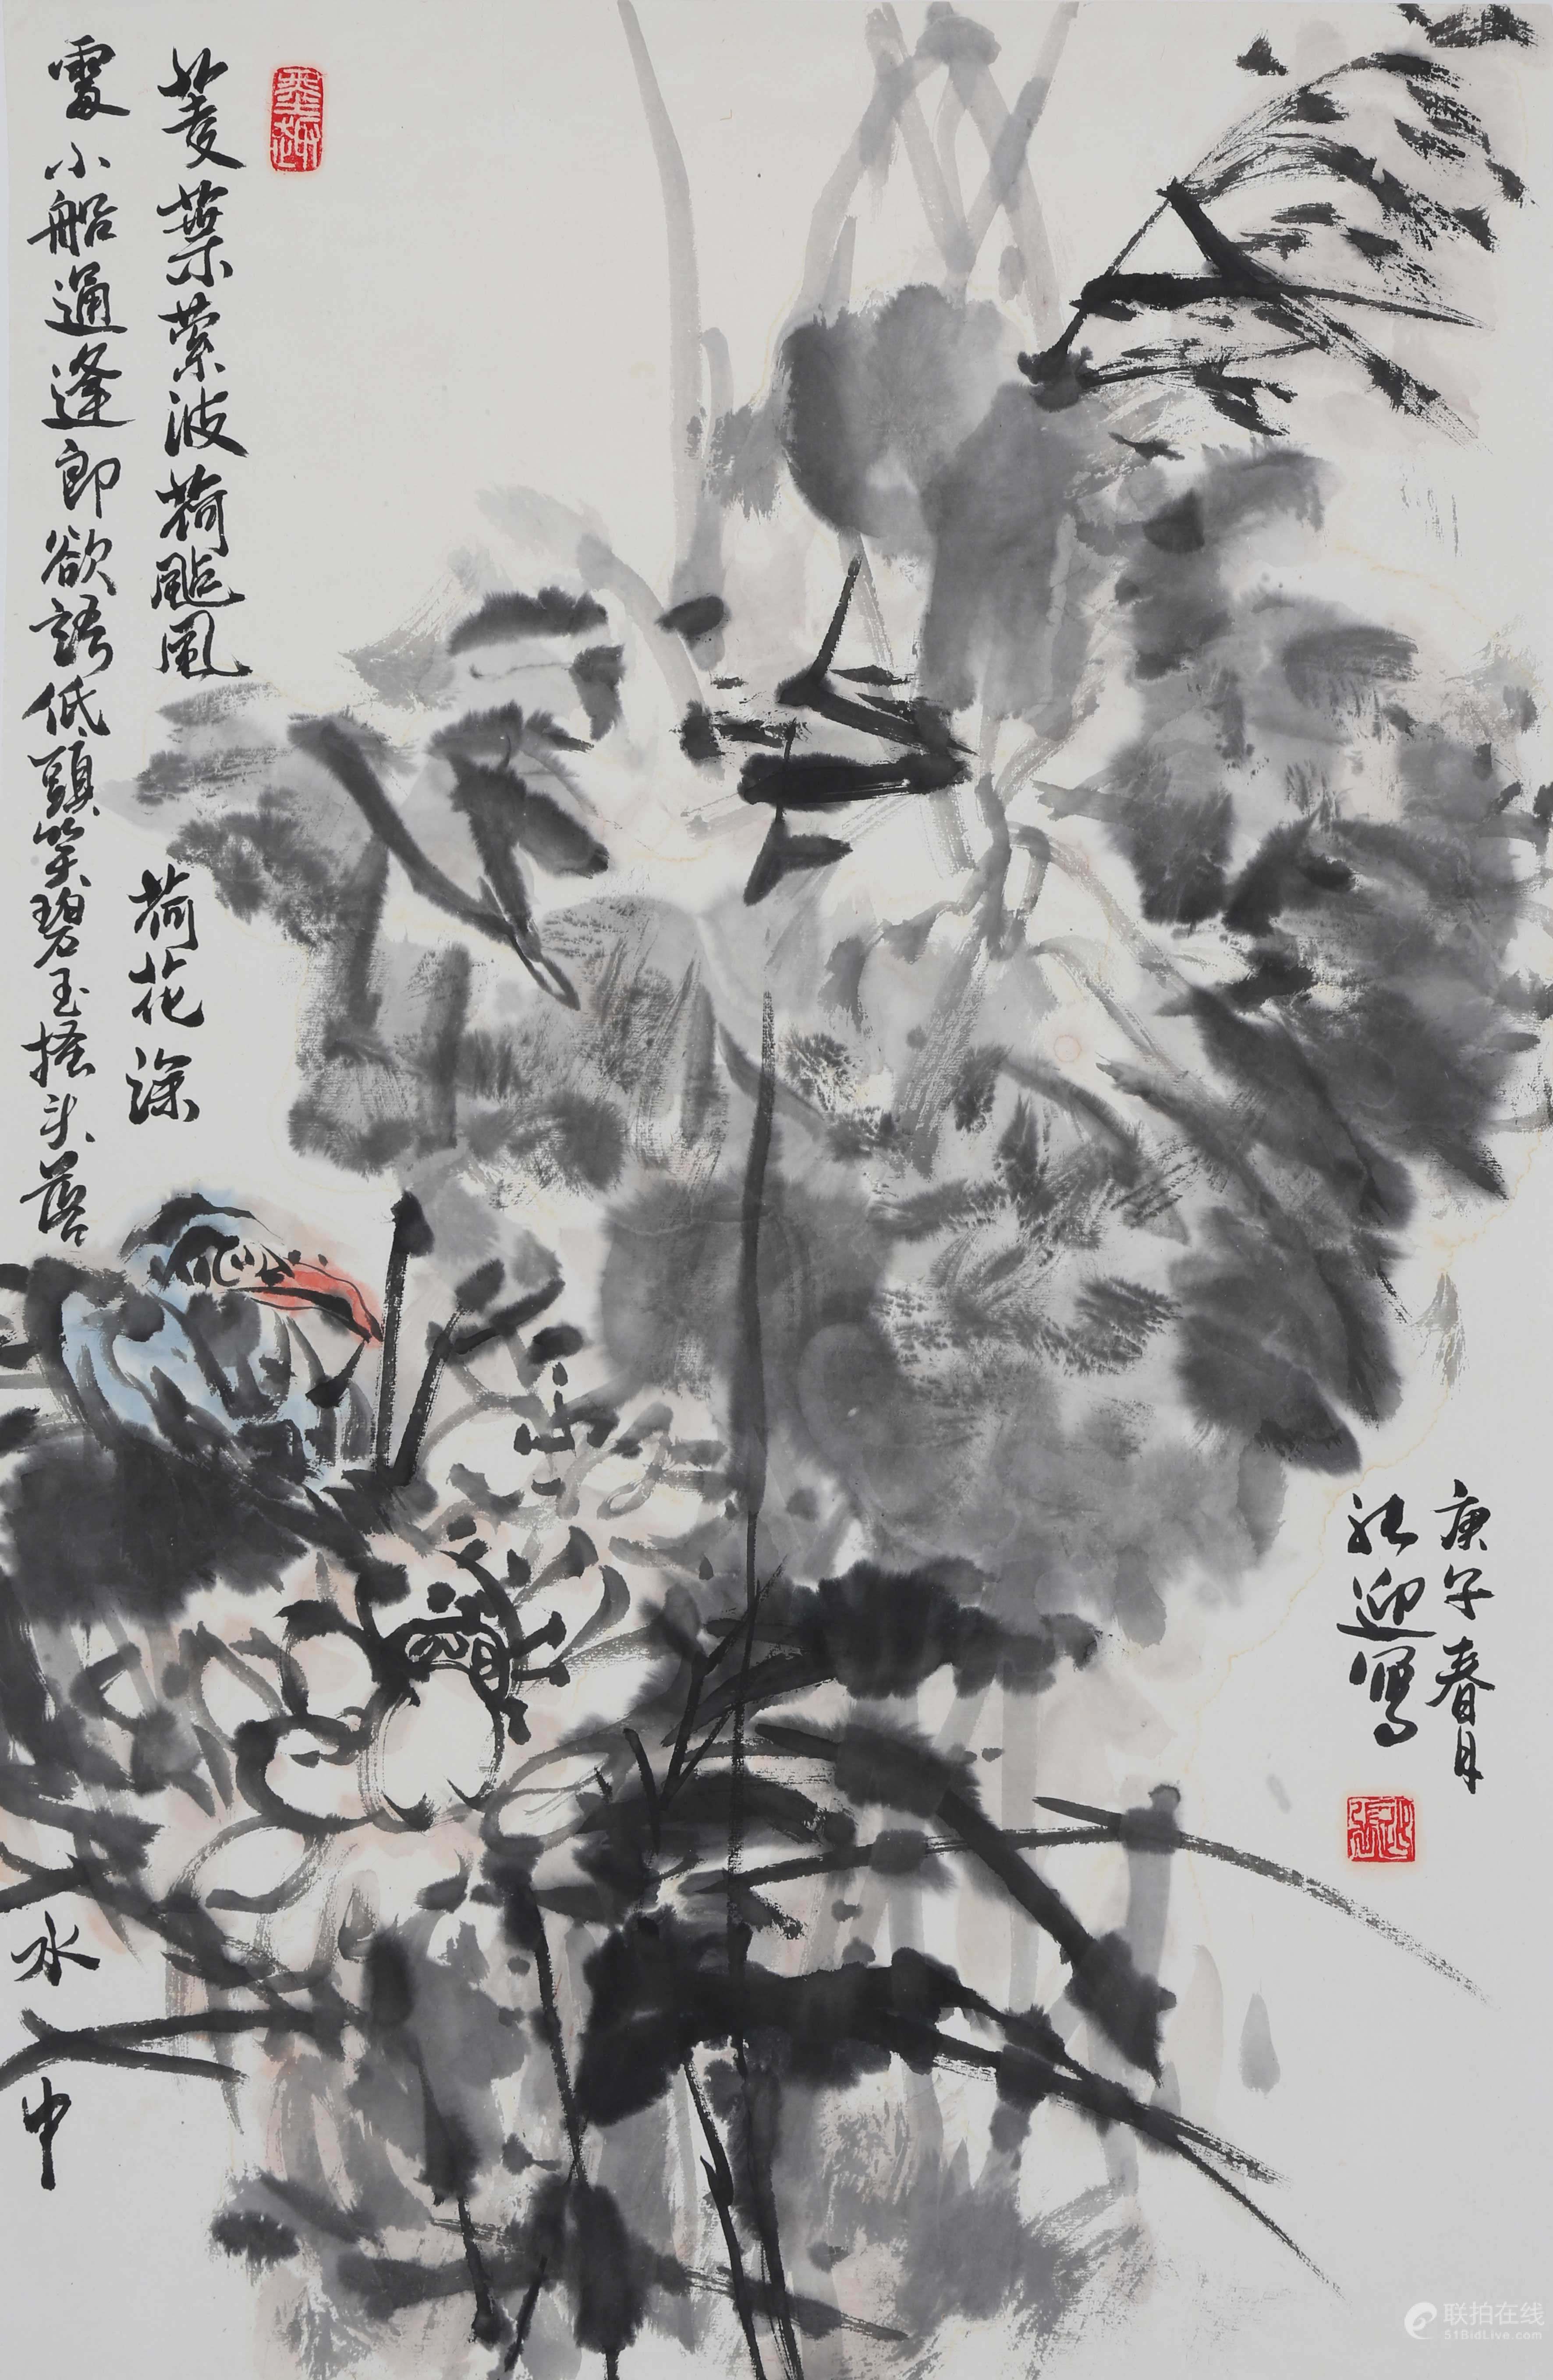 菱葉縈波荷颭風
荷花深
處小船通逢郎欲語低頭笑碧玉搔头落
水中
庚午春月
張迎寫
联拍在线
51BidLive.com